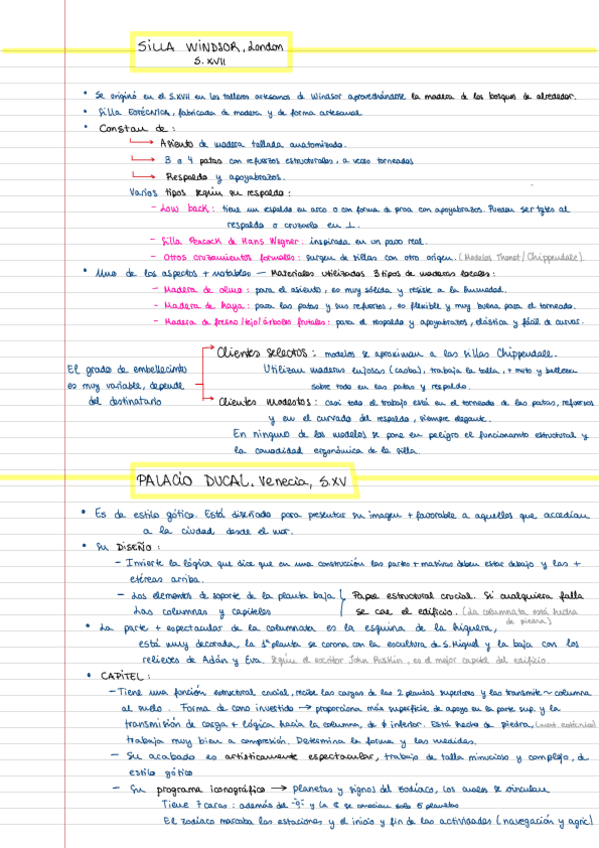 SILLA WINDSOR, London
S.XVII
• Se originó en el S.XVII en los talleres artesanos de Windsor aprovechándose la madera de los bosques de alrededor.
• Silla EOTÉCNICA, fabricada de madera y de forma artesanal
• Constan de:
→ Asiento de madera tallada anatomizada.
→ 3 o 4 patas con refuerzos estructurales, a veces torneados
→ Respaldo y apoyabrazos.
Varios tipos según su respaldo:
- Low back: tiene un respaldo en arco o con forma de proa con apoyabrazos. Pueden ser tgtes al
respaldo o cruzarlo en ⊥.
- Silla Peacock de Hans Wegner: inspirada en un pavo real.
- Otros cruzamientos formales: surgen de sillas con otro origen. (Modelos Thonet / Chippendale).
• Uno de los aspectos + notables — Materiales utilizados 3 tipos de maderas locales:
- Madera de olmo: para el asiento, es muy sólida y resiste a la humedad.
- Madera de haya: para las patas y sus refuerzos, es flexible y muy buena para el torneado.
- Madera de fresno/tejo/árboles frutales: para el respaldo y apoyabrazos, elástica y fácil de curvar.
Clientes selectos: modelos se aproximan a las sillas Chippendale.
El grado de embellecimto
Utilizan maderas lujosas (caoba), trabaja la talla, + mixto y belleza
es muy variable, depende
sobre todo en las patas y respaldo.
del destinatario
Clientes modestos: casi todo el trabajo está en el torneado de las patas, refuerzos
y en el curvado del respaldo, siempre elegante.
En ninguno de los modelos se pone en peligro el funcionamnto estructural y
la comodidad ergonómica de la silla.
PALACIO DUCAL. Venecia, S.XV
• Es de estilo gótico. Está diseñado para presentar su imagen + favorable a aquellos que accedían
a la ciudad desde el mar.
• Su DISEÑO:
- Invierte la lógica que dice que en una construcción las partes + masivas deben estar debajo y las +
etéreas arriba.
- Los elementos de soporte de la planta baja { Papel estructural crucial. Si cualquiera falla
Las columnas y capiteles se cae el edificio. (La columnata está hecha
de piedra)
• La parte + espectacular de la columnata es la esquina de la higuera,
está muy decorada, la 1ª planta se corona con la escultura de S. Miguel y la baja con los
relieves de Adán y Eva. Según el escritor John Ruskin, es el mejor capitel del edificio.
• CAPITEL:
- Tiene una función estructural crucial, recibe las cargas de las 2 plantas superiores y las transmite ~ columna
al suelo. Forma de cono invertido → proporciona más superficie de apoyo en la parte sup. y la
transmisión de carga + lógica hacia la column, de ϕ inferior. Está hecho de piedra,
trabaja muy bien a compresión. Determina la forma y las medidas.
- Su acabado es artísticamente espectacular, trabajo de talla minucioso y complejo, de
estilo gótico
- Su programa iconográfico → planetas y signos del zodíaco, los cuales se vinculan
Tiene 7 caras: además del y la se conocían solo 5 planetas
El zodíaco marcaba las estaciones y el inicio y fin de las actividades (navegación y agric)